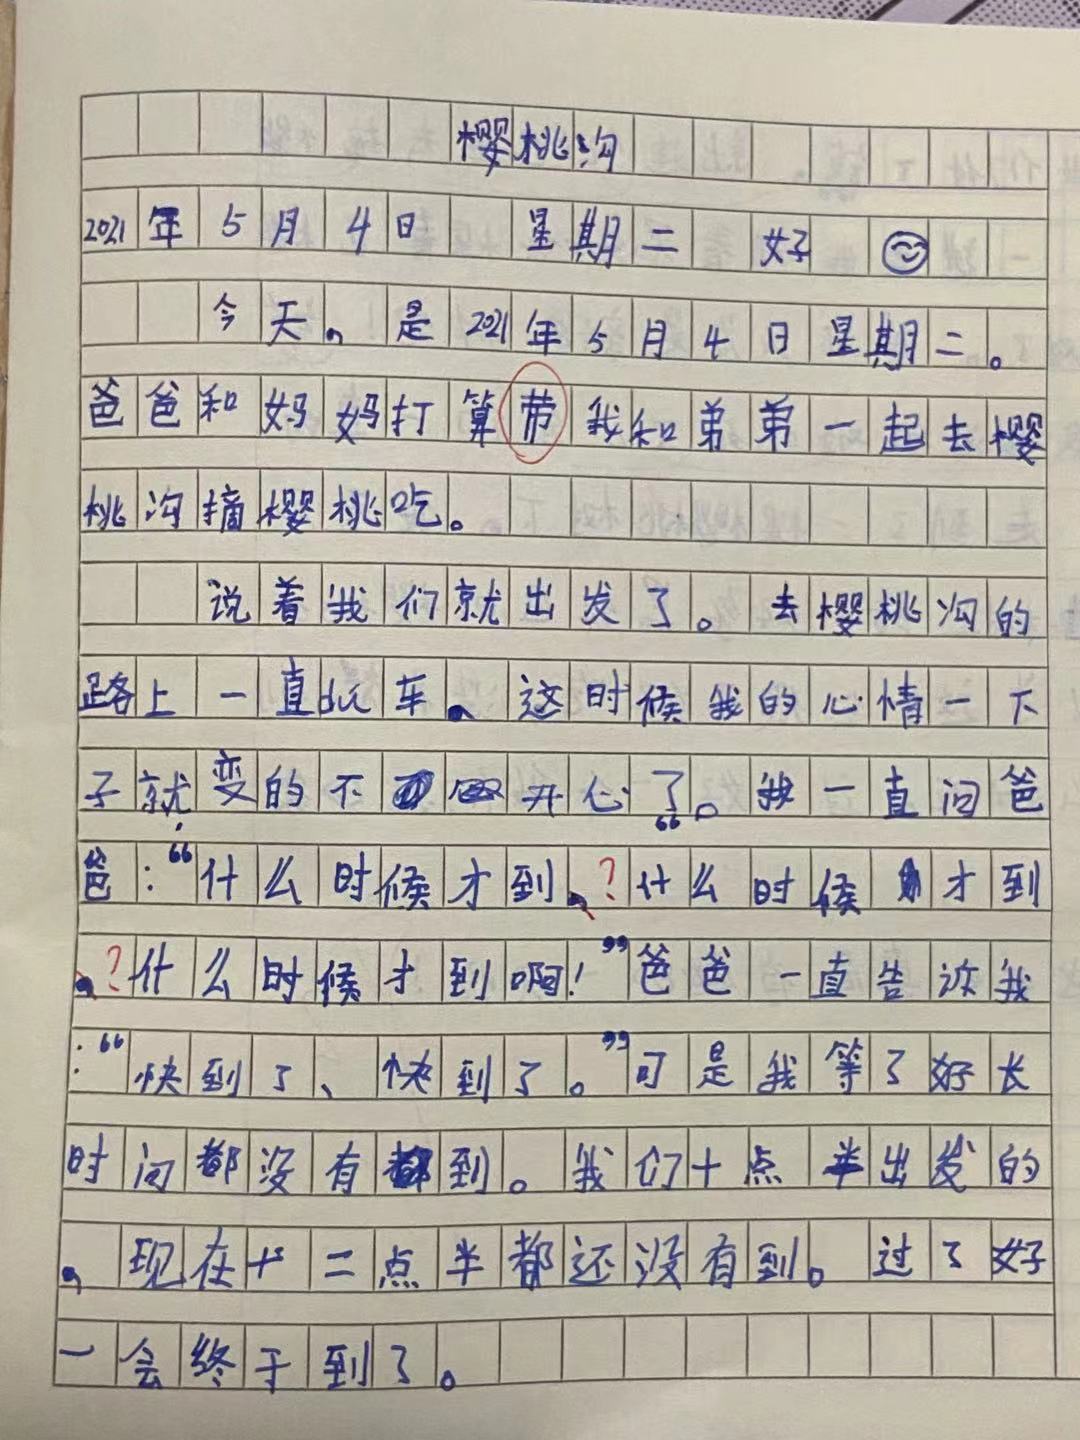 樱桃沟
2021年5月4日 星期二 好
今天，是2021年5月4日星期二。
爸爸和妈妈打算带我和弟弟一起去樱
桃沟摘樱桃吃。
说着我们就出发了。去樱桃沟的
路上一直du车，这时候我的心情一下
子就变的不开心了。我一直问爸
爸：“什么时候才到，？“什么时候才到
，？什么时候才到啊！”爸爸一直告诉我
：“快到了、快到了。”可是我等了好长
时间都没有到。我们十点半出发的
，现在十二点半都还没有到。过了好
一会终于到了。